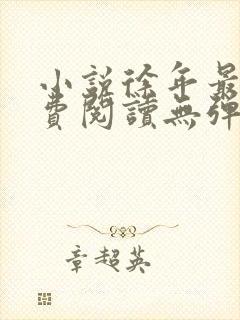 小說徐年最
費閱讀無彈
章超英